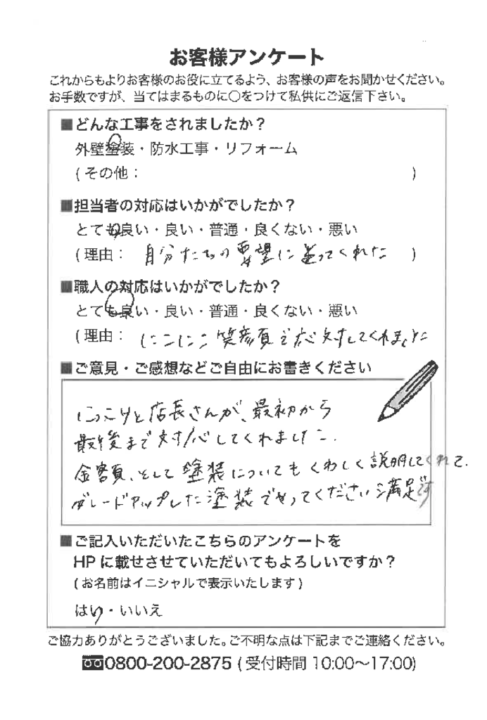 お客様アンケート
これからもよりお客様のお役に立てるよう、お客様の声をお聞かせください。
お手数ですが、当てはまるものに○をつけて私供にご返信下さい。
■どんな工事をされましたか?
外壁塗装・防水工事・リフォーム
(その他: )
■担当者の対応はいかがでしたか?
とても良い・良い・普通・良くない・悪い
(理由: 自分たちの要望に そってくれた )
■職人の対応はいかがでしたか?
とても良い・良い・普通・良くない・悪い
(理由: にこにこ 笑顔で 対応してくれました
■ご意見・ご感想などご自由にお書きください
店長さんが、最初から
最後まで対応してくれました。
金額、そして塗装についてもくわしく説明してくれて、
グレードアップした塗装でやってくださり満足です
■ご記入いただいたこちらのアンケートを
HPに載せさせていただいてもよろしいですか?
(お名前はイニシャルで表示いたします)
はい・いいえ
ご協力ありがとうございました。ご不明な点は下記までご連絡ください。
0800-200-2875 (受付時間 10:00〜17:00)